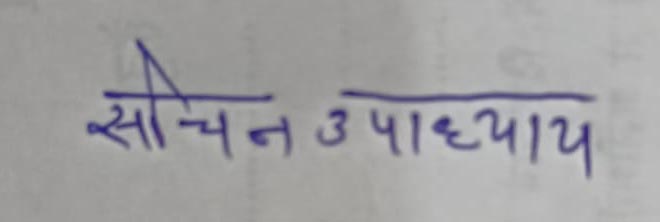 सौचन उपाध्याय